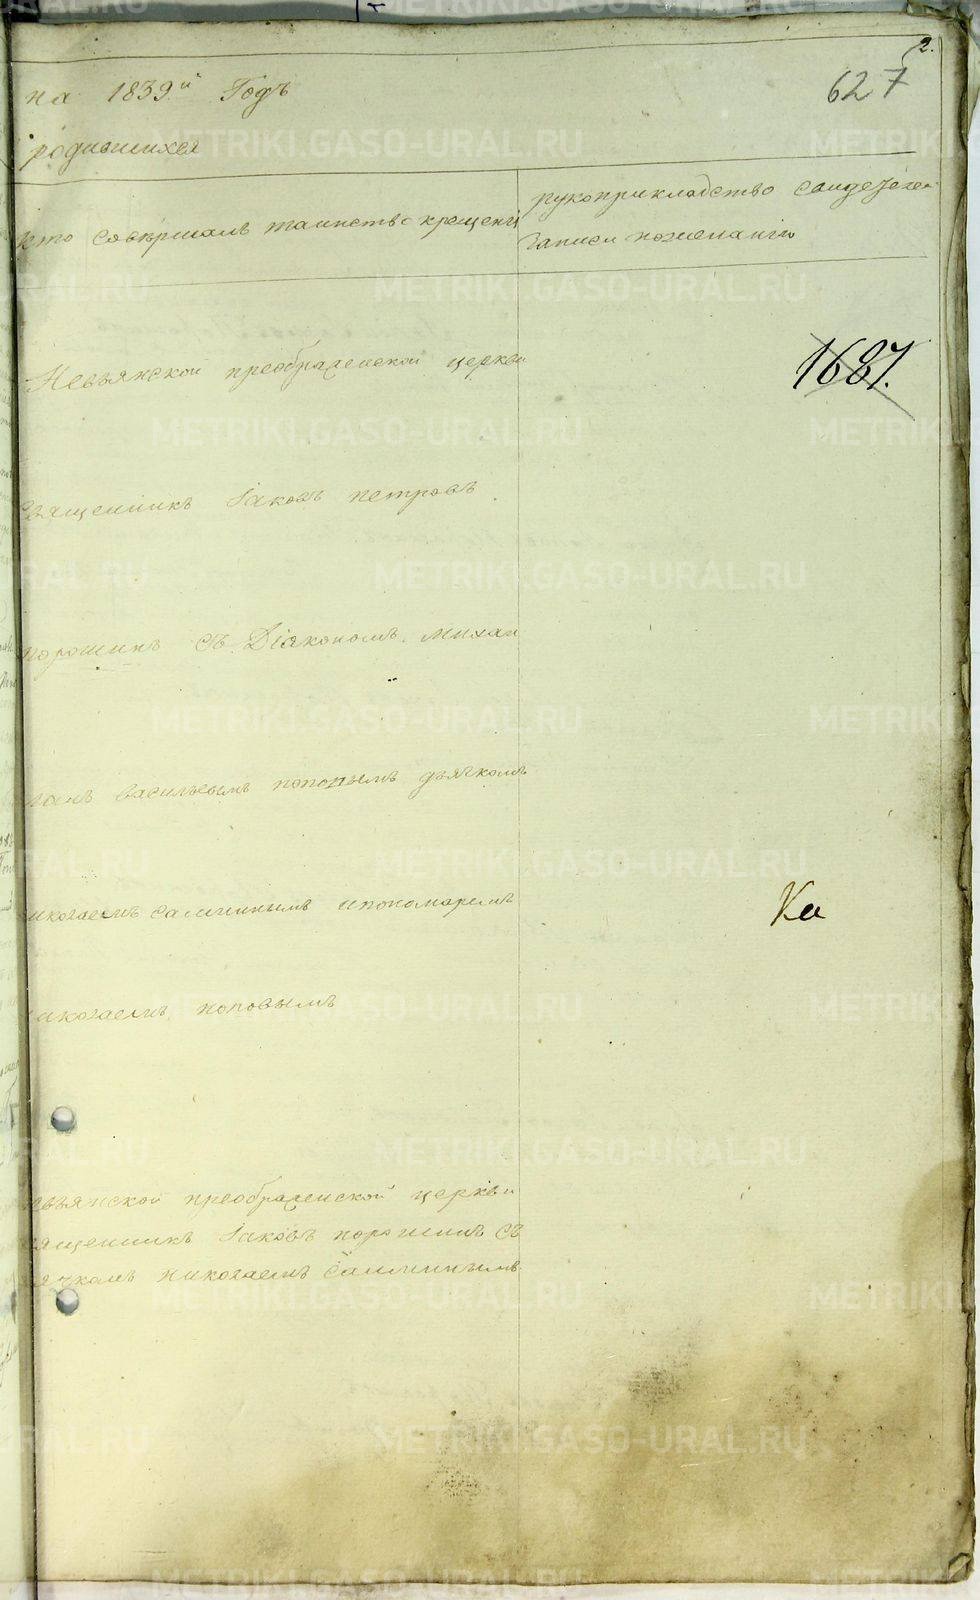 2.
627
на 1839й Годъ
родившихся
кто совершалъ таинство крещенія
рукоприкладство свидетелей
записи пожеланію
1687.
Невьянской преображенской церкви
священникъ Іаковъ петровъ
порошинъ съ Діякономъ михаи
васильевымъ поповымъ дьячкомъ
Ка
николаемъ саминнымъ ипономаремъ
николаемъ поповымъ
невьянской преображенской церкви
священникъ Іаковъ порошинъ съ
дьячкомъ николаемъ саминнымъ